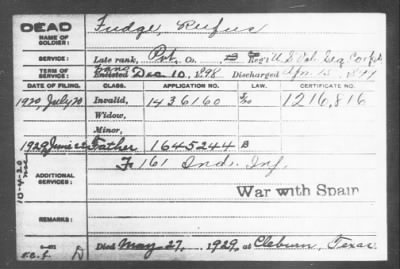 DEAD
NAME OF SOLDIER:
Fudge, Rufus
SERVICE:
Late rank, Pvt. Co. Reg't U.S. Vol. Sig. Corps
TERM OF SERVICE:
Enlisted Dec 10, 1898 Discharged Apr. 15, 1899
DATE OF FILING. CLASS. APPLICATION NO. LAW. CERTIFICATE NO.
1920, July 20 Invalid, 1436160 1216,816
Widow,
Minor,
1929, June 22 Father 1645244 B
ADDITIONAL SERVICES:
F 161 Ind. Inf.
War with Spain
10-4-20
REMARKS:
Died May 27, 1929, at Cleburn, Texas